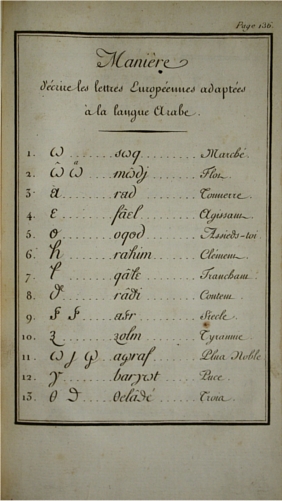 Page 136.
Manière
d'écrire les lettres Européennes adaptées
à la langue Arabe.
1. ω ...... sωq ......... Marché.
2. ω̂ ω̋ ...... mωdj ......... Flot.
3. a ...... rad ......... Tonnerre
4. ε ...... fâεl ......... Agissant
5. o ...... oqod ......... Assieds-toi
6. ħ ...... rahim ......... Clément
7. ...... qâte ......... Tranchant.
8. ...... râdi ......... Content.
9. ...... asr ......... Siecle.
10. ...... zolm ......... Tyrannie
11. ...... aȷraf ......... Plus Noble
12. ...... baryot ......... Puce.
13. θ ...... θelâθé ......... Trois.